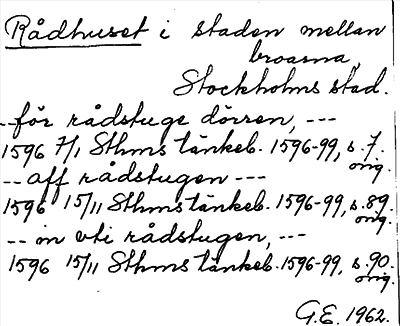 Rådhuset i staden mellan
broarna,
Stockholms stad.
-- för rådstuge dörren, ---
1596 7/1 Sthms tänkeb. 1596-99, s. 7.
orig.
-- aff rådstugen ---
1596 15/11 Sthms tänkeb. 1596-99, s. 89.
orig.
-- in vti rådstugen, ---
1596 15/11 Sthms tänkeb. 1596-99, s. 90.
orig.
G.E. 1962.